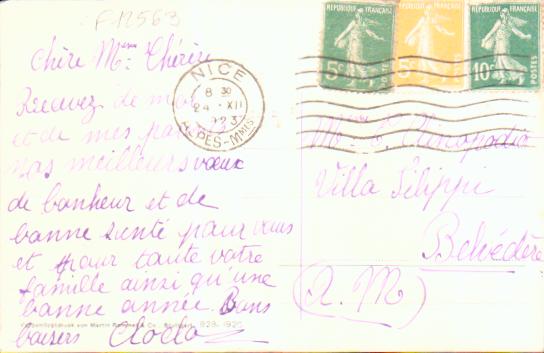 F-12563
Chère Mme Thérèse
Recevez de moi
et de mes pa
nos meilleurs vœux
de bonheur et de
bonne santé pour vous
et pour toute votre
famille ainsi qu'une
bonne année. Bons
baisers Cloclo
REPUBLIQUE FRANÇAISE
5c
POSTES
REPUBLIQUE FRANÇAISE
5c
REPUBLIQUE FRANÇAISE
10c
POSTES
NICE
8 30
24 - XII
23
ALPES-MMES
Villa Filippi
Belvédère
(A. M)
von Martin & Co. Stuttgart